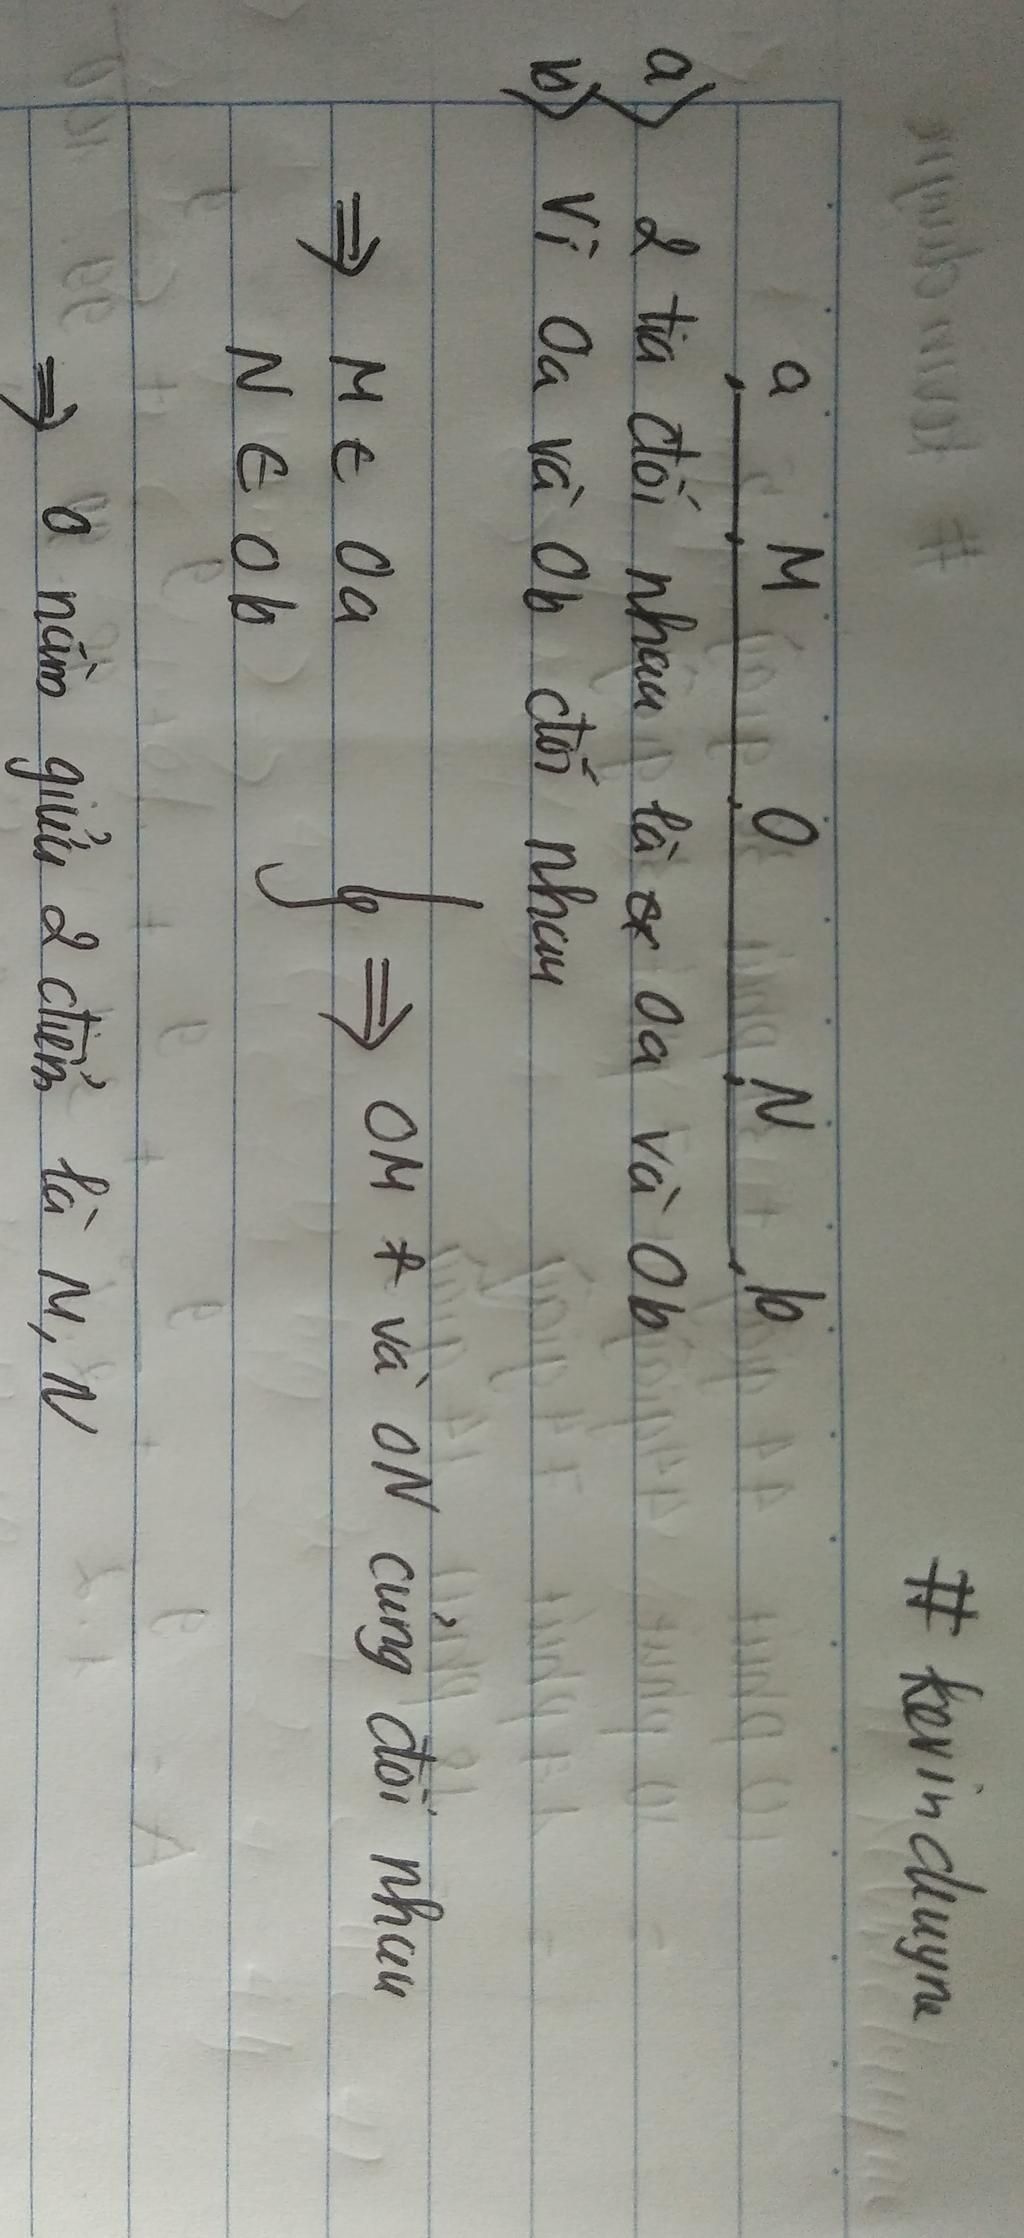 # kevinduyne
a M O N b
a) 2 tia đối nhau là Oa và Ob
b) Vì Oa và Ob đối nhau
⇒ M ∈ Oa
N ∈ Ob
} ⇒ OM và ON cũng đối nhau
⇒ O nằm giữa 2 điểm là M, N